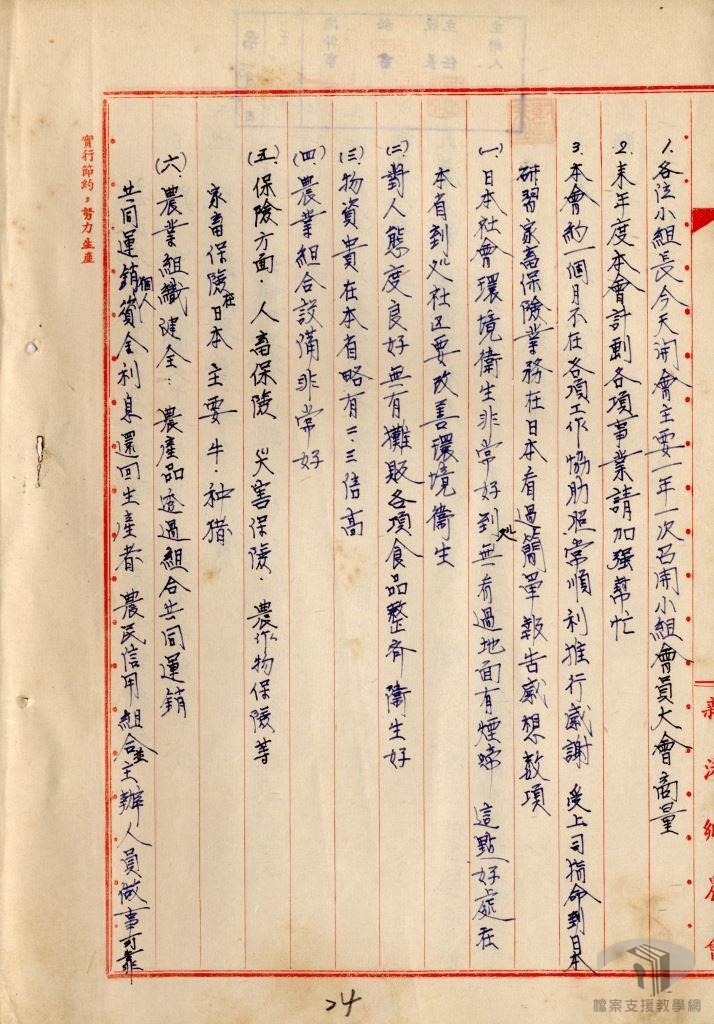 1. 各位小組長今天開會主要一年一次召開小組會員大會商量
2. 來年度本會計劃各項事業請加强幫忙
3. 本會約一個月不在各項工作協助照常順利推行感謝 受上司指命到日本
研習家畜保險業務在日本看過簡單報告感想数項
(一)日本社會環境衛生非常好到処無看過地面有煙蒂 這點好處在
本省到処社区要改善環境衛生
(二)對人態度良好無有攤販各項食品整齊衛生好
(三)物資貴在本省略有二.三倍高
(四)農業組合設備非常好
(五)保險方面．人畜保險 災害保險．農作物保險等
家畜保險在日本主要牛．种猪
(六)農業組織健全：農産品透過組合共同運銷
共同運銷個人資金利息還回生產者 農民信用組合並主辦人員做事可靠
實行節約，努力生產
新港鄉農會
24
檔案支援教學網